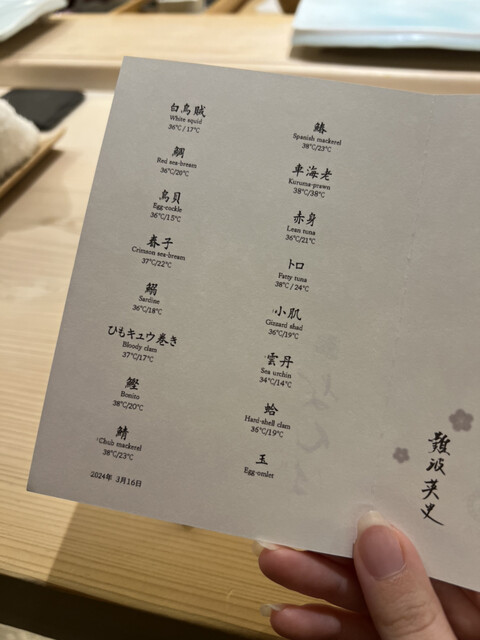 白烏賊
White squid
36℃/17℃
鯛
Red sea-bream
36℃/20℃
鳥貝
Egg-cockle
36℃/15℃
春子
Crimson sea-bream
37℃/22℃
鰯
Sardine
36℃/18℃
ひもキュウ巻き
Bloody clam
37℃/17℃
鰹
Bonito
38℃/20℃
鯖
Chub mackerel
38℃/23℃
2024年 3月16日
鰆
Spanish mackerel
38℃/23℃
車海老
Kuruma-prawn
38℃/38℃
赤身
Lean tuna
36℃/21℃
トロ
Fatty tuna
38℃/24℃
小肌
Gizzard shad
36℃/19℃
雲丹
Sea urchin
34℃/14℃
蛤
Hard-shell clam
36℃/19℃
玉
Egg-omlet
難波英史